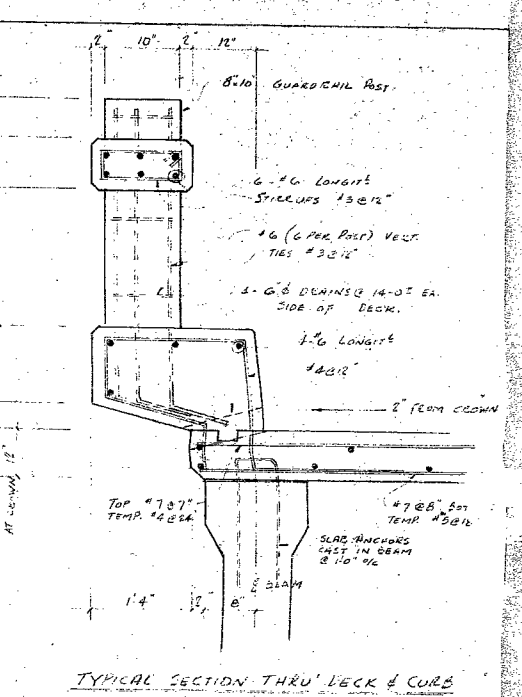 2" 10" 2" 12"
8"x10" GUARDRAIL POST.
6 - #6 LONGIT!
STIRRUPS #3@12"
#6 (6 PER POST) VERT.
TIES #3@12"
6"ϕ DRAINS@ 14-0" EA.
SIDE OF DECK.
#6 LONGIT!
#4@12"
2" FROM CROWN
AT CROWN, 12"
TOP #7@7"
TEMP. #4@24"
#7@8" BOT
TEMP. #5@12
SLAB ANCHORS
CAST IN BEAM
@ 1'-0" o/c
BEAM
1'4" 2" 8"
TYPICAL SECTION THRU' DECK & CURB